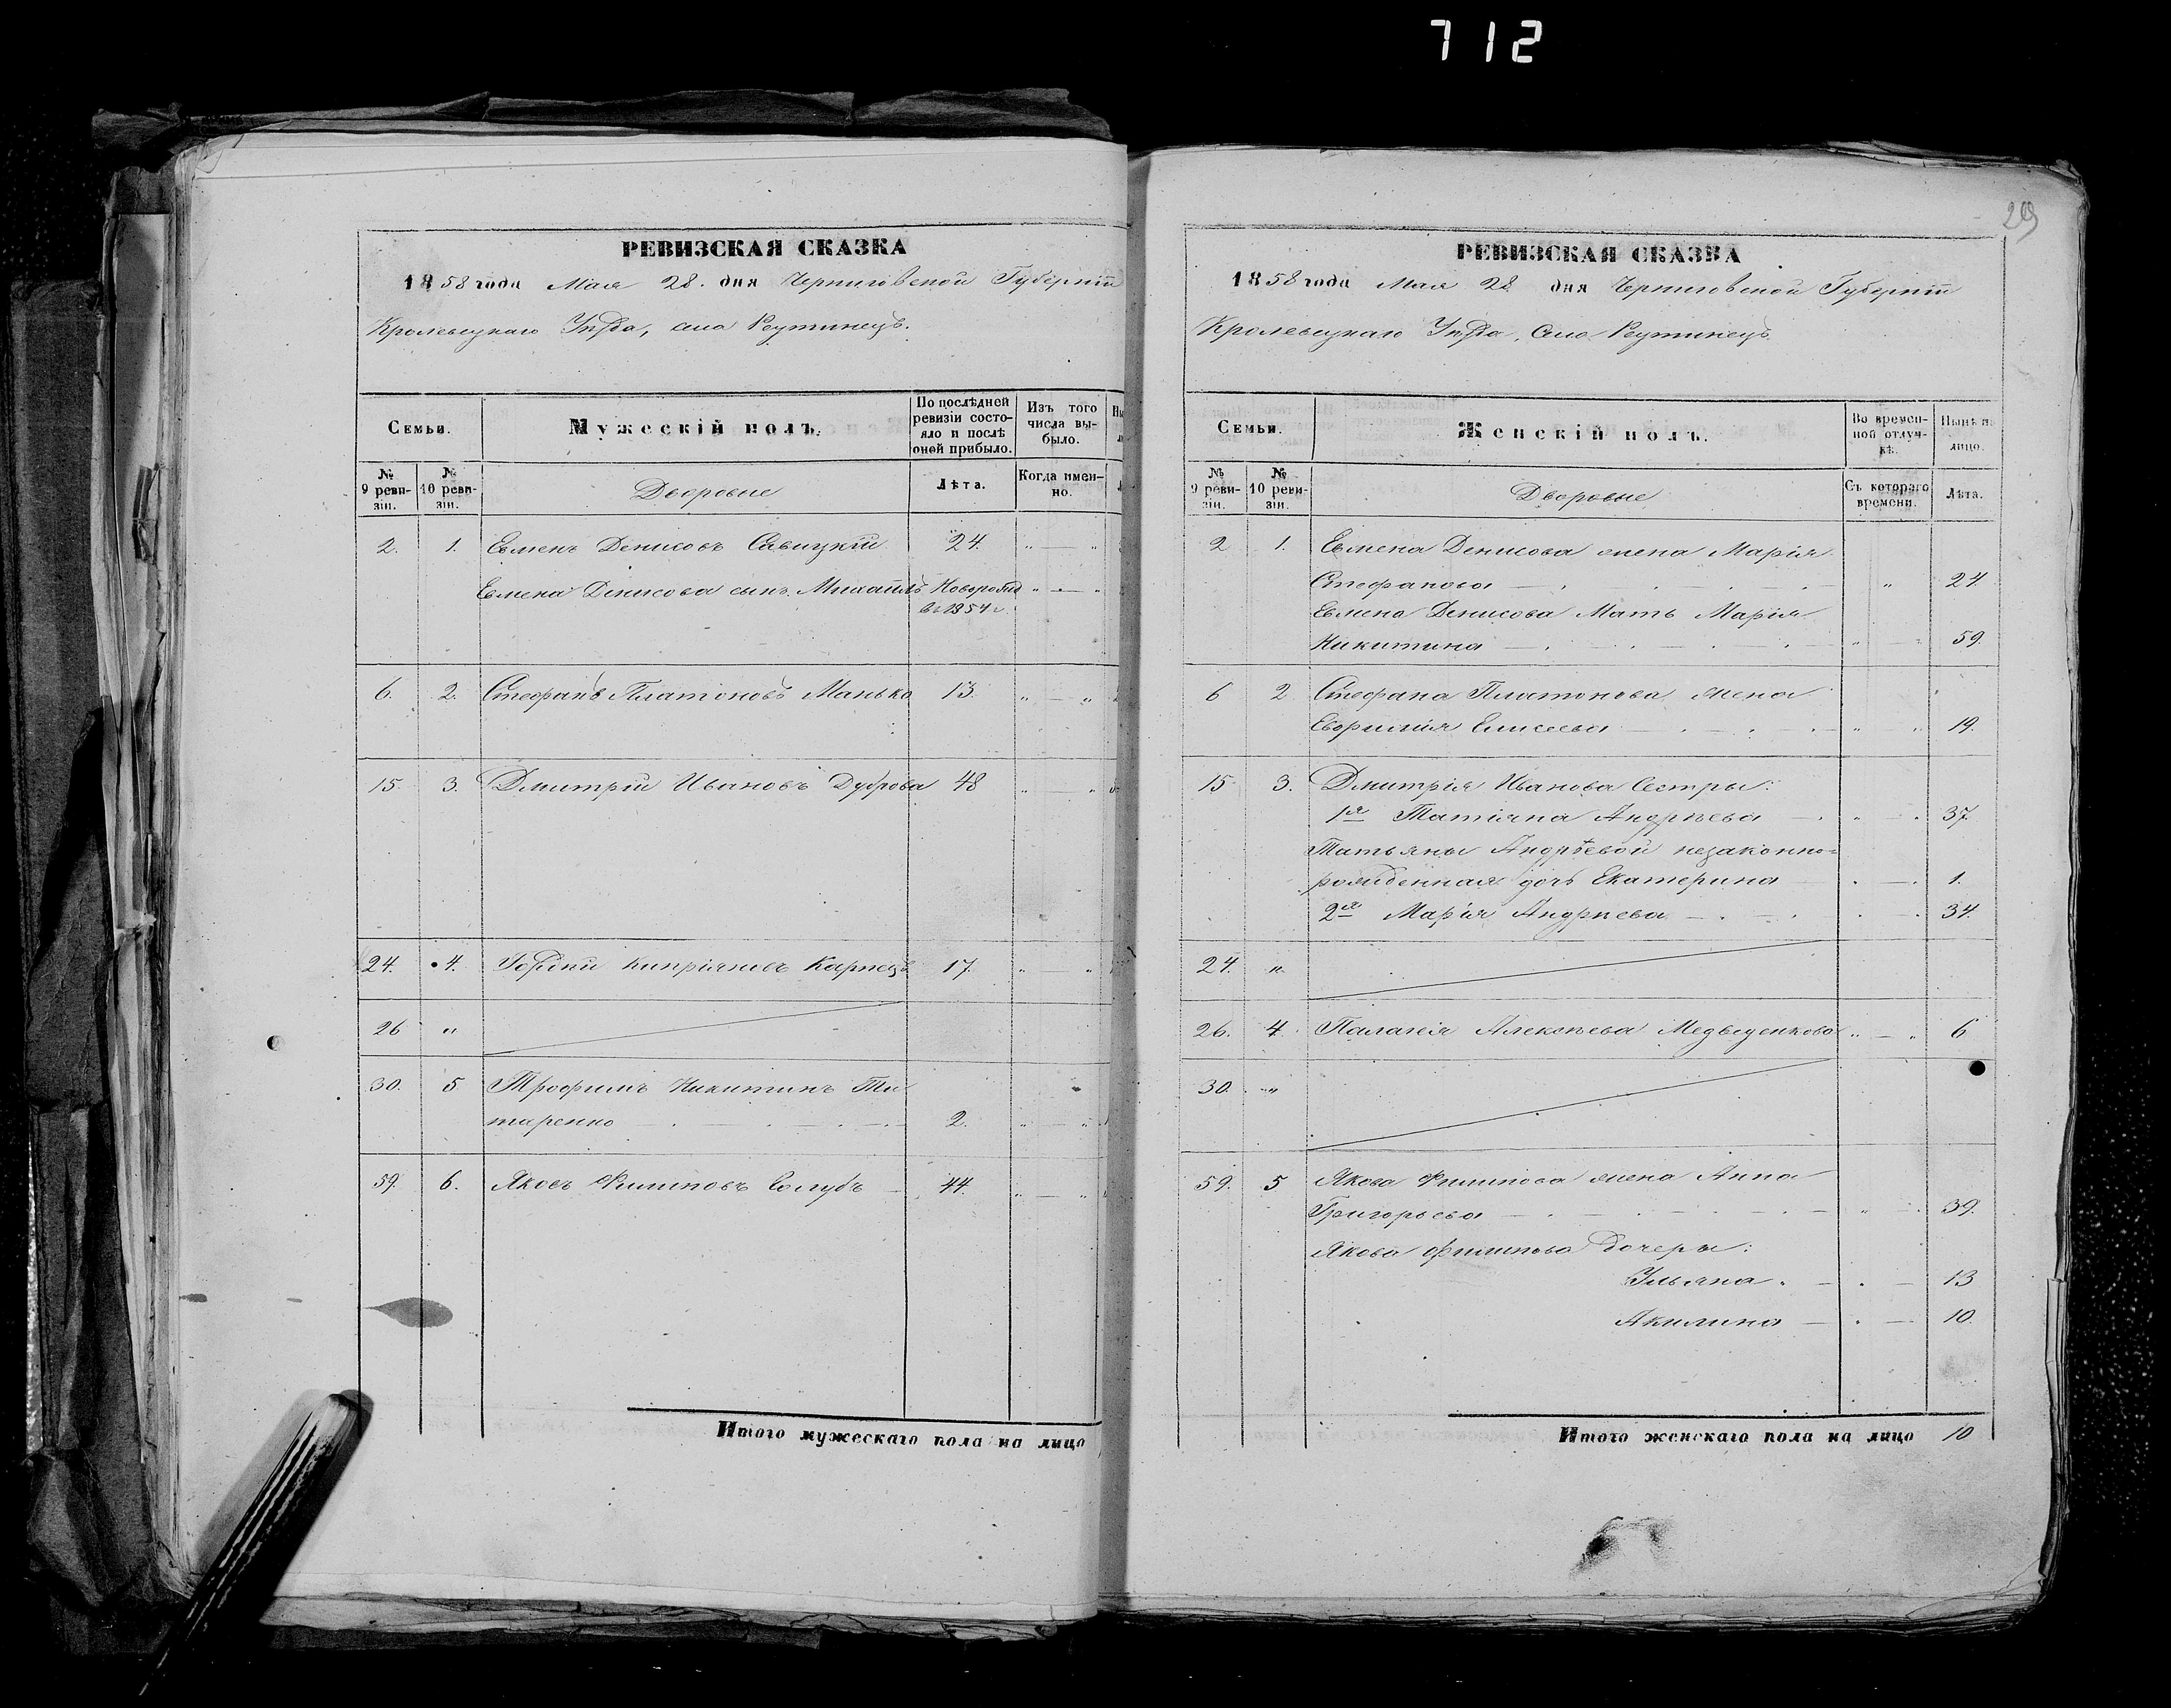 712
РЕВИЗСКАЯ СКАЗКА
1858 года Мая 28. дня Черниговской Губерніи
Кролевецкаго Уѣзда, села Реутинецъ.
Семьи.
Мужескій полъ.
По послѣдней ревизіи состояло и послѣ оной прибыло.
Изъ того числа выбыло.
№ 9 ревизіи.
№ 10 ревизіи.
Дворовые
Лѣта.
Когда именно.
2. 1. Евменъ Денисовъ Савицкій 24. " — "
Евмена Денисова сынъ Михаилъ Новорожд " — "
въ 1854 г.
6. 2. Стефанъ Платоновъ Манько 13. " — "
15. 3. Дмитрій Ивановъ Дуброва 48 " — "
24. 4. Киприяновъ Карпецъ 17. " — "
26 "
30. 5 Трофимъ Никитинъ Ти
таренко 2. " — "
59. 6. Яковъ Филиповъ Голубъ 44. " — "
Итого мужескаго пола на лицо
29
РЕВИЗСКАЯ СКАЗКА
1858 года Мая 28 дня Черниговской Губерніи
Кролевецкаго Уѣзда, Села Реутинецъ.
Семьи.
Женскій полъ.
Во временной отлучкѣ.
Нынѣ на лицо.
№ 9 ревизіи.
№ 10 ревизіи.
Дворовые
Съ котораго времени.
Лѣта.
2 1. Евмена Денисова жена Марія
Стефанова " 24
Евмена Денисова Мать Марія
Никитина " — " 59.
6 2 Стефана Платонова жена
Евфимія Елисеева " — " 19.
15 3. Дмитрія Иванова Сестры:
1я Татіяна Андрѣева " — " 37.
Татьяны Андрѣевой незаконно=
рожденная дочь Екатерина 1.
2я Марія Андрѣева 34.
24. "
26. 4. Палагея Алексѣева Медведенкова " — " 6
30. "
59. 5. Якова Филипова жена Анна
Григорьева " 39.
Якова Филипова Дочеры:
Ульяна 13
Акилина 10.
Итого женскаго пола на лицо 10